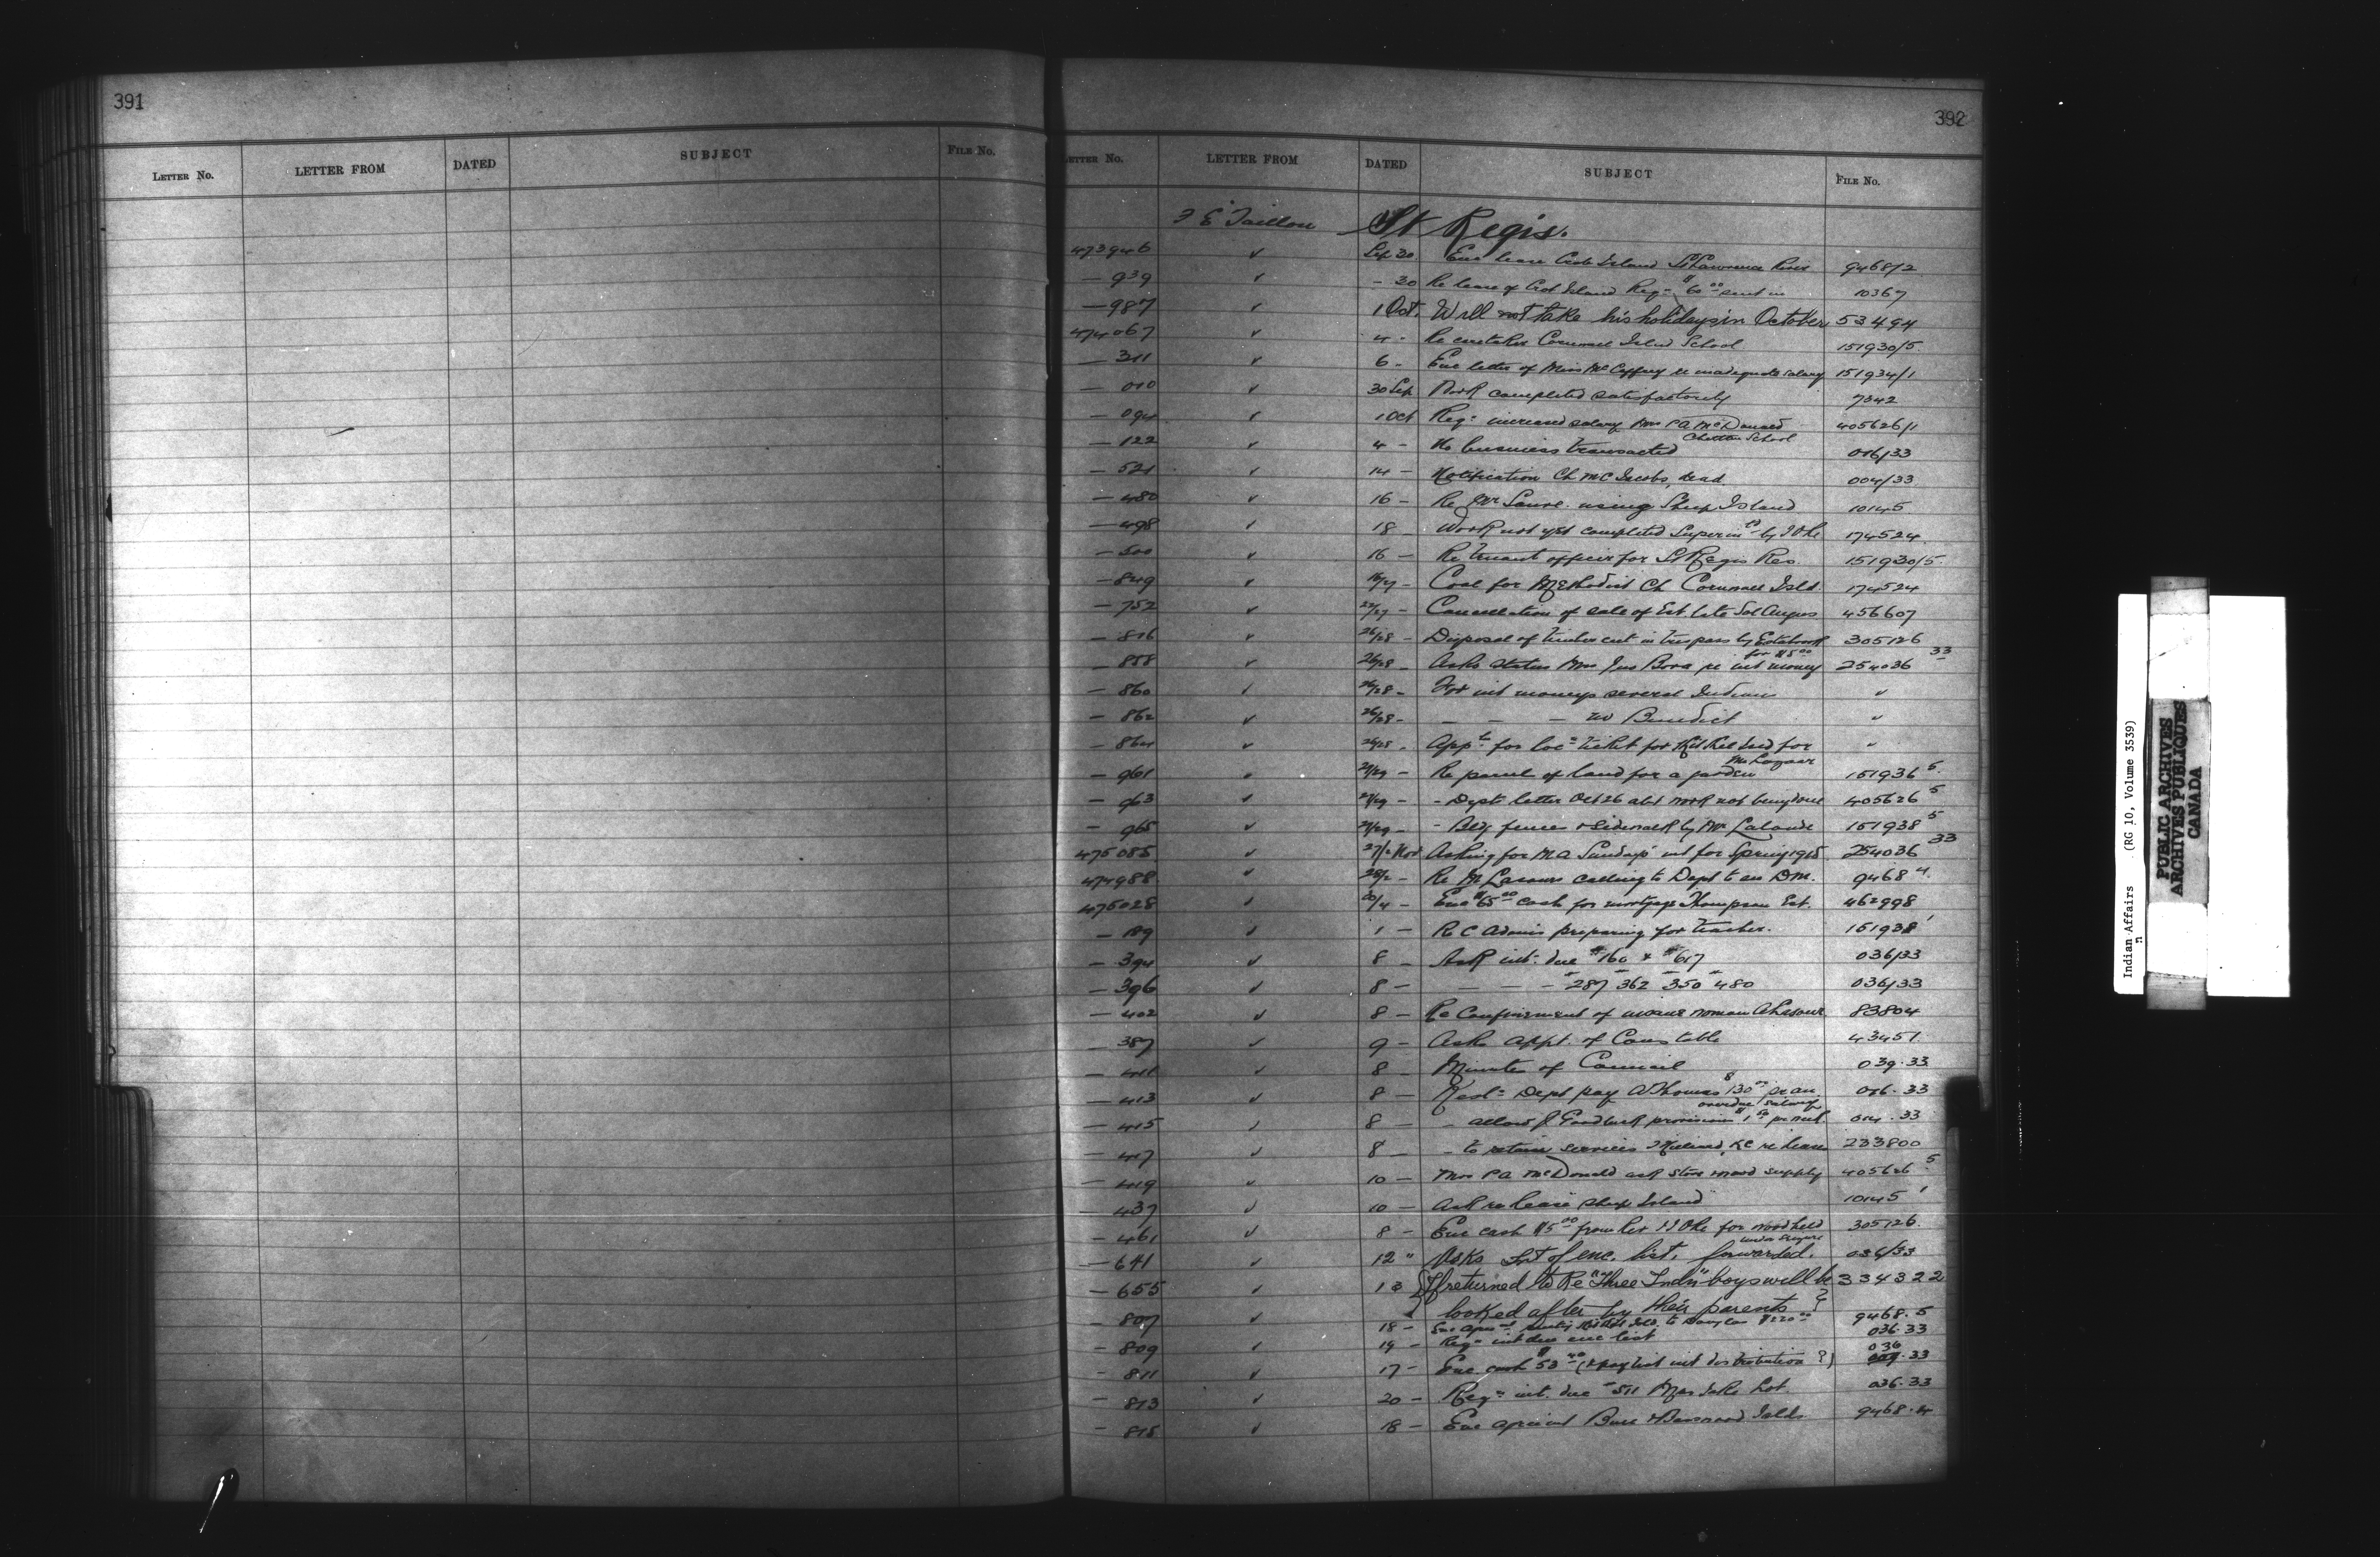 391
LETTER No. LETTER FROM DATED SUBJECT FILE No.
392
LETTER No. LETTER FROM DATED SUBJECT FILE No.
F E Taillon St Regis.
473946 ✓ Sep 30 Enc lease Island St Lawrence River 9468/2
— 939 ✓ - 30 Re lease of Island Reqn $60 00 sent in 10367
— 987 ✓ 1 Oct. Will not take his holidays in October 53494
474067 ✓ 4 - Re caretaker Cornwall Island School 151930/5
— 311 ✓ 6 - Enc letter of Miss McCaffrey re inadequate salary 151934/1
— 010 ✓ 30 Sep Work completed satisfactorily 7342
— 094 ✓ 1 Oct Reqn increased salary Mrs P A McDonald 405626/1
School
— 122 ✓ 4 - No business transacted 016/33
— 521 ✓ 14 - Notification Ch McC Jacobs, dead 004/33
— 480 ✓ 16 - Re Mr using Sheep Island 10145
— 498 ✓ 18 - Work not yet completed by 174524
— 500 ✓ 16 - Re truant officer for St Regis Res 151930/5
— 849 ✓ 16/27 - Coal for Methodist Ch Cornwall Isld. 174524
— 752 ✓ 22/27 - Cancellation of sale of Est late Sol Angus 456607
— 816 ✓ 26/28 - Disposal of timber cut in trespass by 305126
for $5 00
— 858 ✓ 26/28 - Asks status Mrs Jas Bova re int money 254036 33
— 860 ✓ 26/28 - For int moneys several Indians "
— 862 ✓ 26/28 - — — — Benedict "
— 864 ✓ 26/28 - for loc ticket for "
— 961 ✓ 27/29 - Re parcel of land for a garden 151936 5
— 963 ✓ 27/29 - - Depts letter Oct 26 abt work not being done 405626 5
— 965 ✓ 27/29 - - fences & sidewalk by Mr Lalonde 151938 5
475085 ✓ 27/2 Nov Asking for M A Sundays int for Spring 1915 254036 33
474988 ✓ 28/2 - Re M calling to Dept to see D.M. 9468 4
475028 ✓ 30/4 - Enc $65 00 cash for mortgage Thompson Est. 462998
— 189 ✓ 1 — Re C Adams preparing for teacher. 151938 1
— 394 ✓ 8 — Ask int. due #160 & #617 036/33
— 396 ✓ 8 — — — — #287 #362 #350 #480 036/33
— 402 ✓ 8 — Re Confinement of insane woman 83804
— 387 ✓ 9 — Asks appt. of Constable 43451
— 411 8 Minutes of Council 039.33
— 413 ✓ 8 — Resln Dept pay A Thomas $130 00 per an 016.33
overdue salary
— 415 ✓ 8 — - allow J Goodleaf provision $1 50 014.33
— 417 ✓ 8 — - to retain services K.C re leases 233800
— 419 ✓ 10 — Mrs P A McDonald ask stove wood supply 405626 5
— 437 ✓ 10 — Ask re lease Sheep Island 10145 1
— 461 ✓ 8 — Enc cash $5 00 from Rev for wood held 305126
under seizure
— 641 ✓ 12 " Asks Int of enc. list. forwarded. 036/33
— 655 13 If returned to Re "Three Indn" boys will be 334322
looked after by their parents ?
— 807 ✓ 18 — 9468.5
— 809 ✓ 19 — Reqn int due enc list 036.33
— 811 ✓ 17 — Enc cash $53 40 (& paylist int distribution ?) 036.33
— 813 ✓ 20 — Reqn int. due #511 Mrs Jake 036.33
— 815 ✓ 18 — Enc Islds 9468.4
Indian Affairs (RG 10, Volume 3539)
PUBLIC ARCHIVES
ARCHIVES PUBLIQUES
CANADA